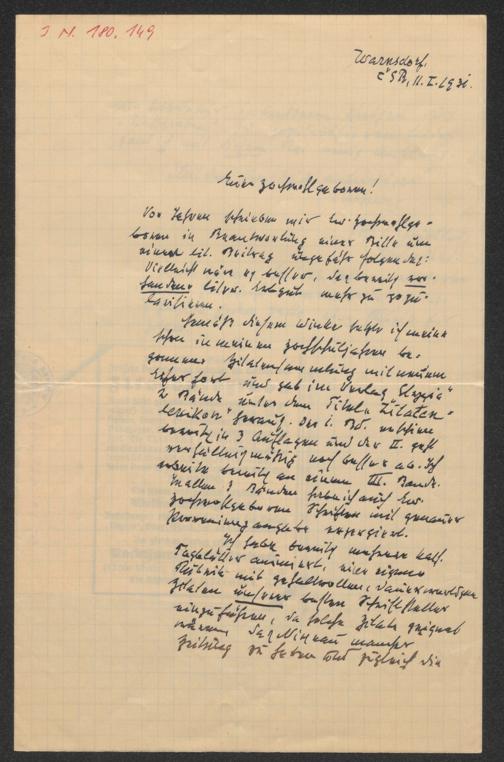 J N. 180.149
Warnsdorf,
ČSR, 11.I.1931.
Euer Hochwohlgeboren!
Vor Jahren schrieben mir Ew. Hochwohlge-
boren in Beantwortung einer Bitte um
einen lit. Beitrag ungefähr folgendes:
Vielleicht wäre es besser, das bereits vor-
handene literar. mehr zu popu-
larisieren.
Gemäß diesem Winke setzte ich meine
schon in meinen Hochschuljahren be-
gonnene Zitatensammlung mit neuem
Eifer fort und gab im Verlag
2 Bände unter dem Titel „Zitaten-
lexikon" heraus. Der I. Bd. erschien
bereits in 3 Auflagen und der II. geht
verhältnismäßig noch besser ab. Ich
arbeite bereits an einem III. Bande.
In allen 3 Bänden habe ich auch Ew.
Hochwohlgeboren Schriften mit genauer
angabe exzerpiert.
Ich habe bereits mehrere
Tagblätter animiert, eine eigene
Rubrik mit gehaltvollen, dauerwertigen
Zitaten unserer besten Schriftsteller
einzuführen, da solche Zitate geeignet
wären das Niveau mancher
Zeitung zu heben und zugleich die